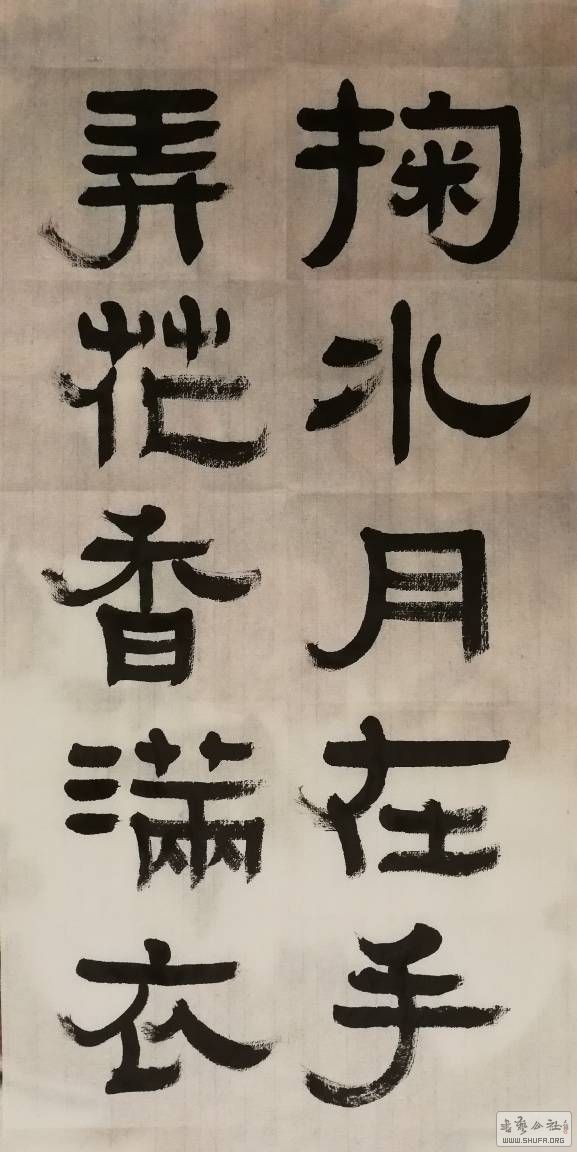 掬水月在手
弄花香满衣
书艺公社
WWW.SHUFA.ORG